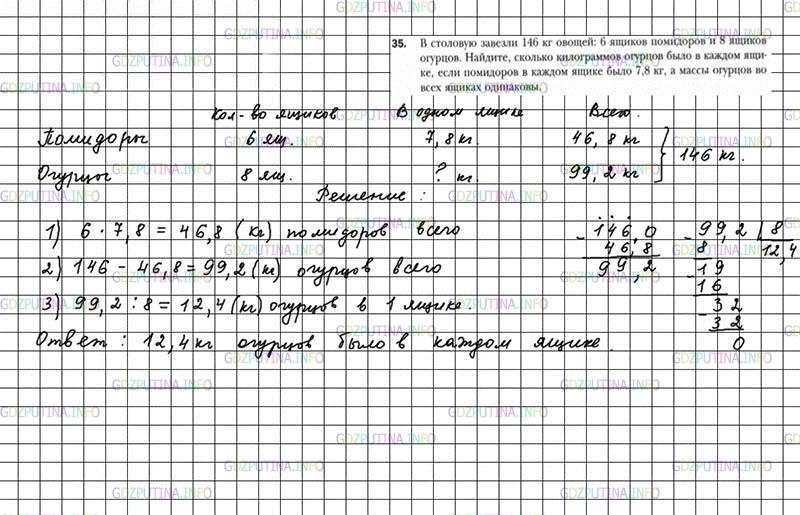 35. В столовую завезли 146 кг овощей: 6 ящиков помидоров и 8 ящиков
огурцов. Найдите, сколько килограммов огурцов было в каждом ящи-
ке, если помидоров в каждом ящике было 7,8 кг, а массы огурцов во
всех ящиках одинаковы.
Кол-во ящиков В одном ящике Всего
Помидоры 6 ящ. 7,8 кг. 46,8 кг
146 кг.
Огурцы 8 ящ. ? кг. 99,2 кг
Решение:
1) 6 · 7,8 = 46,8 (кг) помидоров всего
2) 146 - 46,8 = 99,2 (кг) огурцов всего
3) 99,2 : 8 = 12,4 (кг) огурцов в 1 ящике.
Ответ: 12,4 кг огурцов было в каждом ящике.
- 146,0
46,8
99,2
- 99,2 8
8 12,4
- 19
16
- 32
32
0
GDZPUTINA.INFO